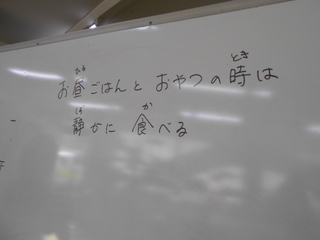 お昼ごはんと おやつの時は
静かに 食べる